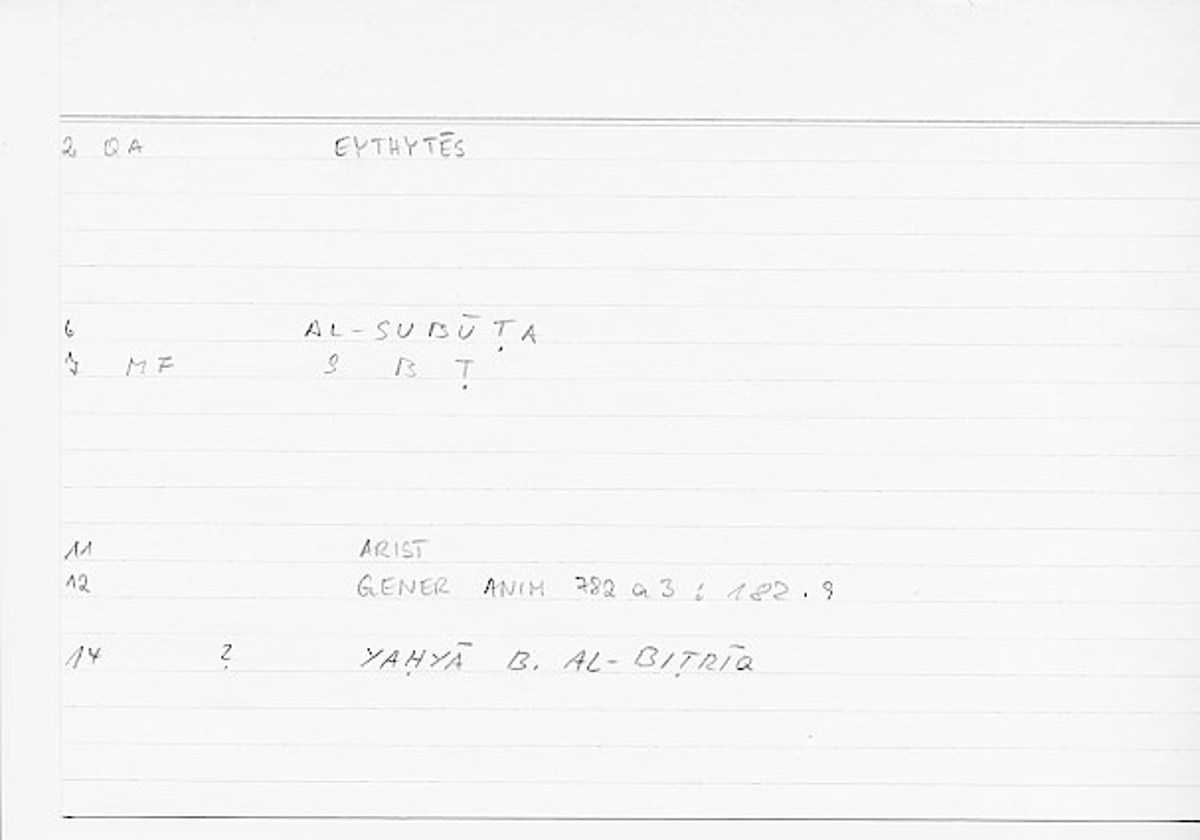 2 QA EYTHYTĒS
6 AL-SUBŪṬA
7 MF S B Ṭ
11 ARIST
12 GENER ANIM 782 a 3 : 182.9
14 ? YAḤYĀ B. AL-BIṬRĪQ